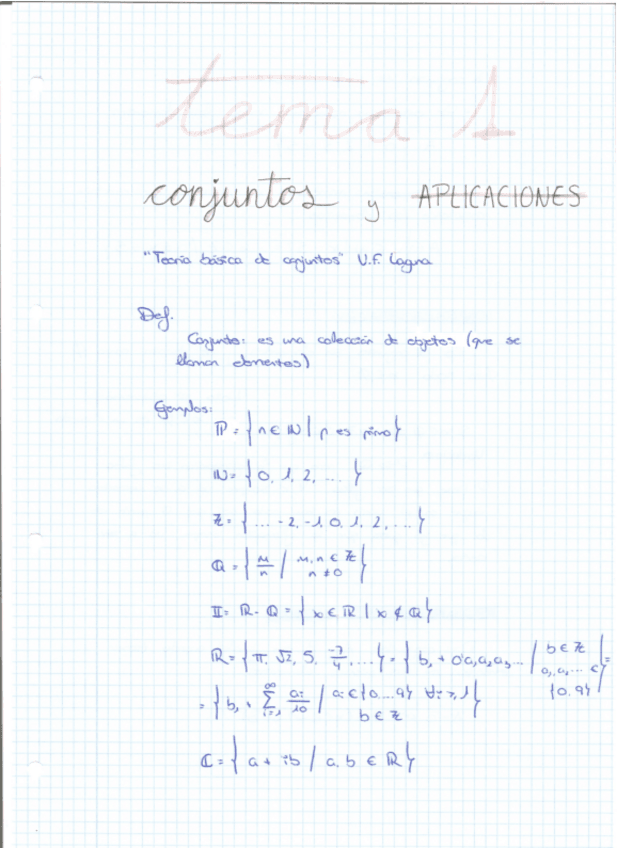 tema 1
conjuntos y APLICACIONES
"Teoría básica de conjuntos" V.F. Laguna
Def.
Conjunto: es una colección de objetos (que se
llaman elementos)
Ejemplos:
ℙ = { n ∈ ℕ | n es primo }
ℕ = { 0, 1, 2, ... }
ℤ = { ... -2, -1, 0, 1, 2, ... }
ℚ = { m/n / m, n ∈ ℤ n ≠ 0 }
𝕀 = ℝ - ℚ = { x ∈ ℝ | x ∉ ℚ }
ℝ = { π, √2, 5, -7/4, ... } = { b, + 0'a₁a₂a₃... / b ∈ ℤ a₁, a₂, ... ∈ {0..9} } =
= { b, + ∑_{i=1}^{∞} aᵢ/10 / aᵢ ∈ {0...9} ∀i ≥ 1 b ∈ ℤ }
ℂ = { a + ib / a, b ∈ ℝ }